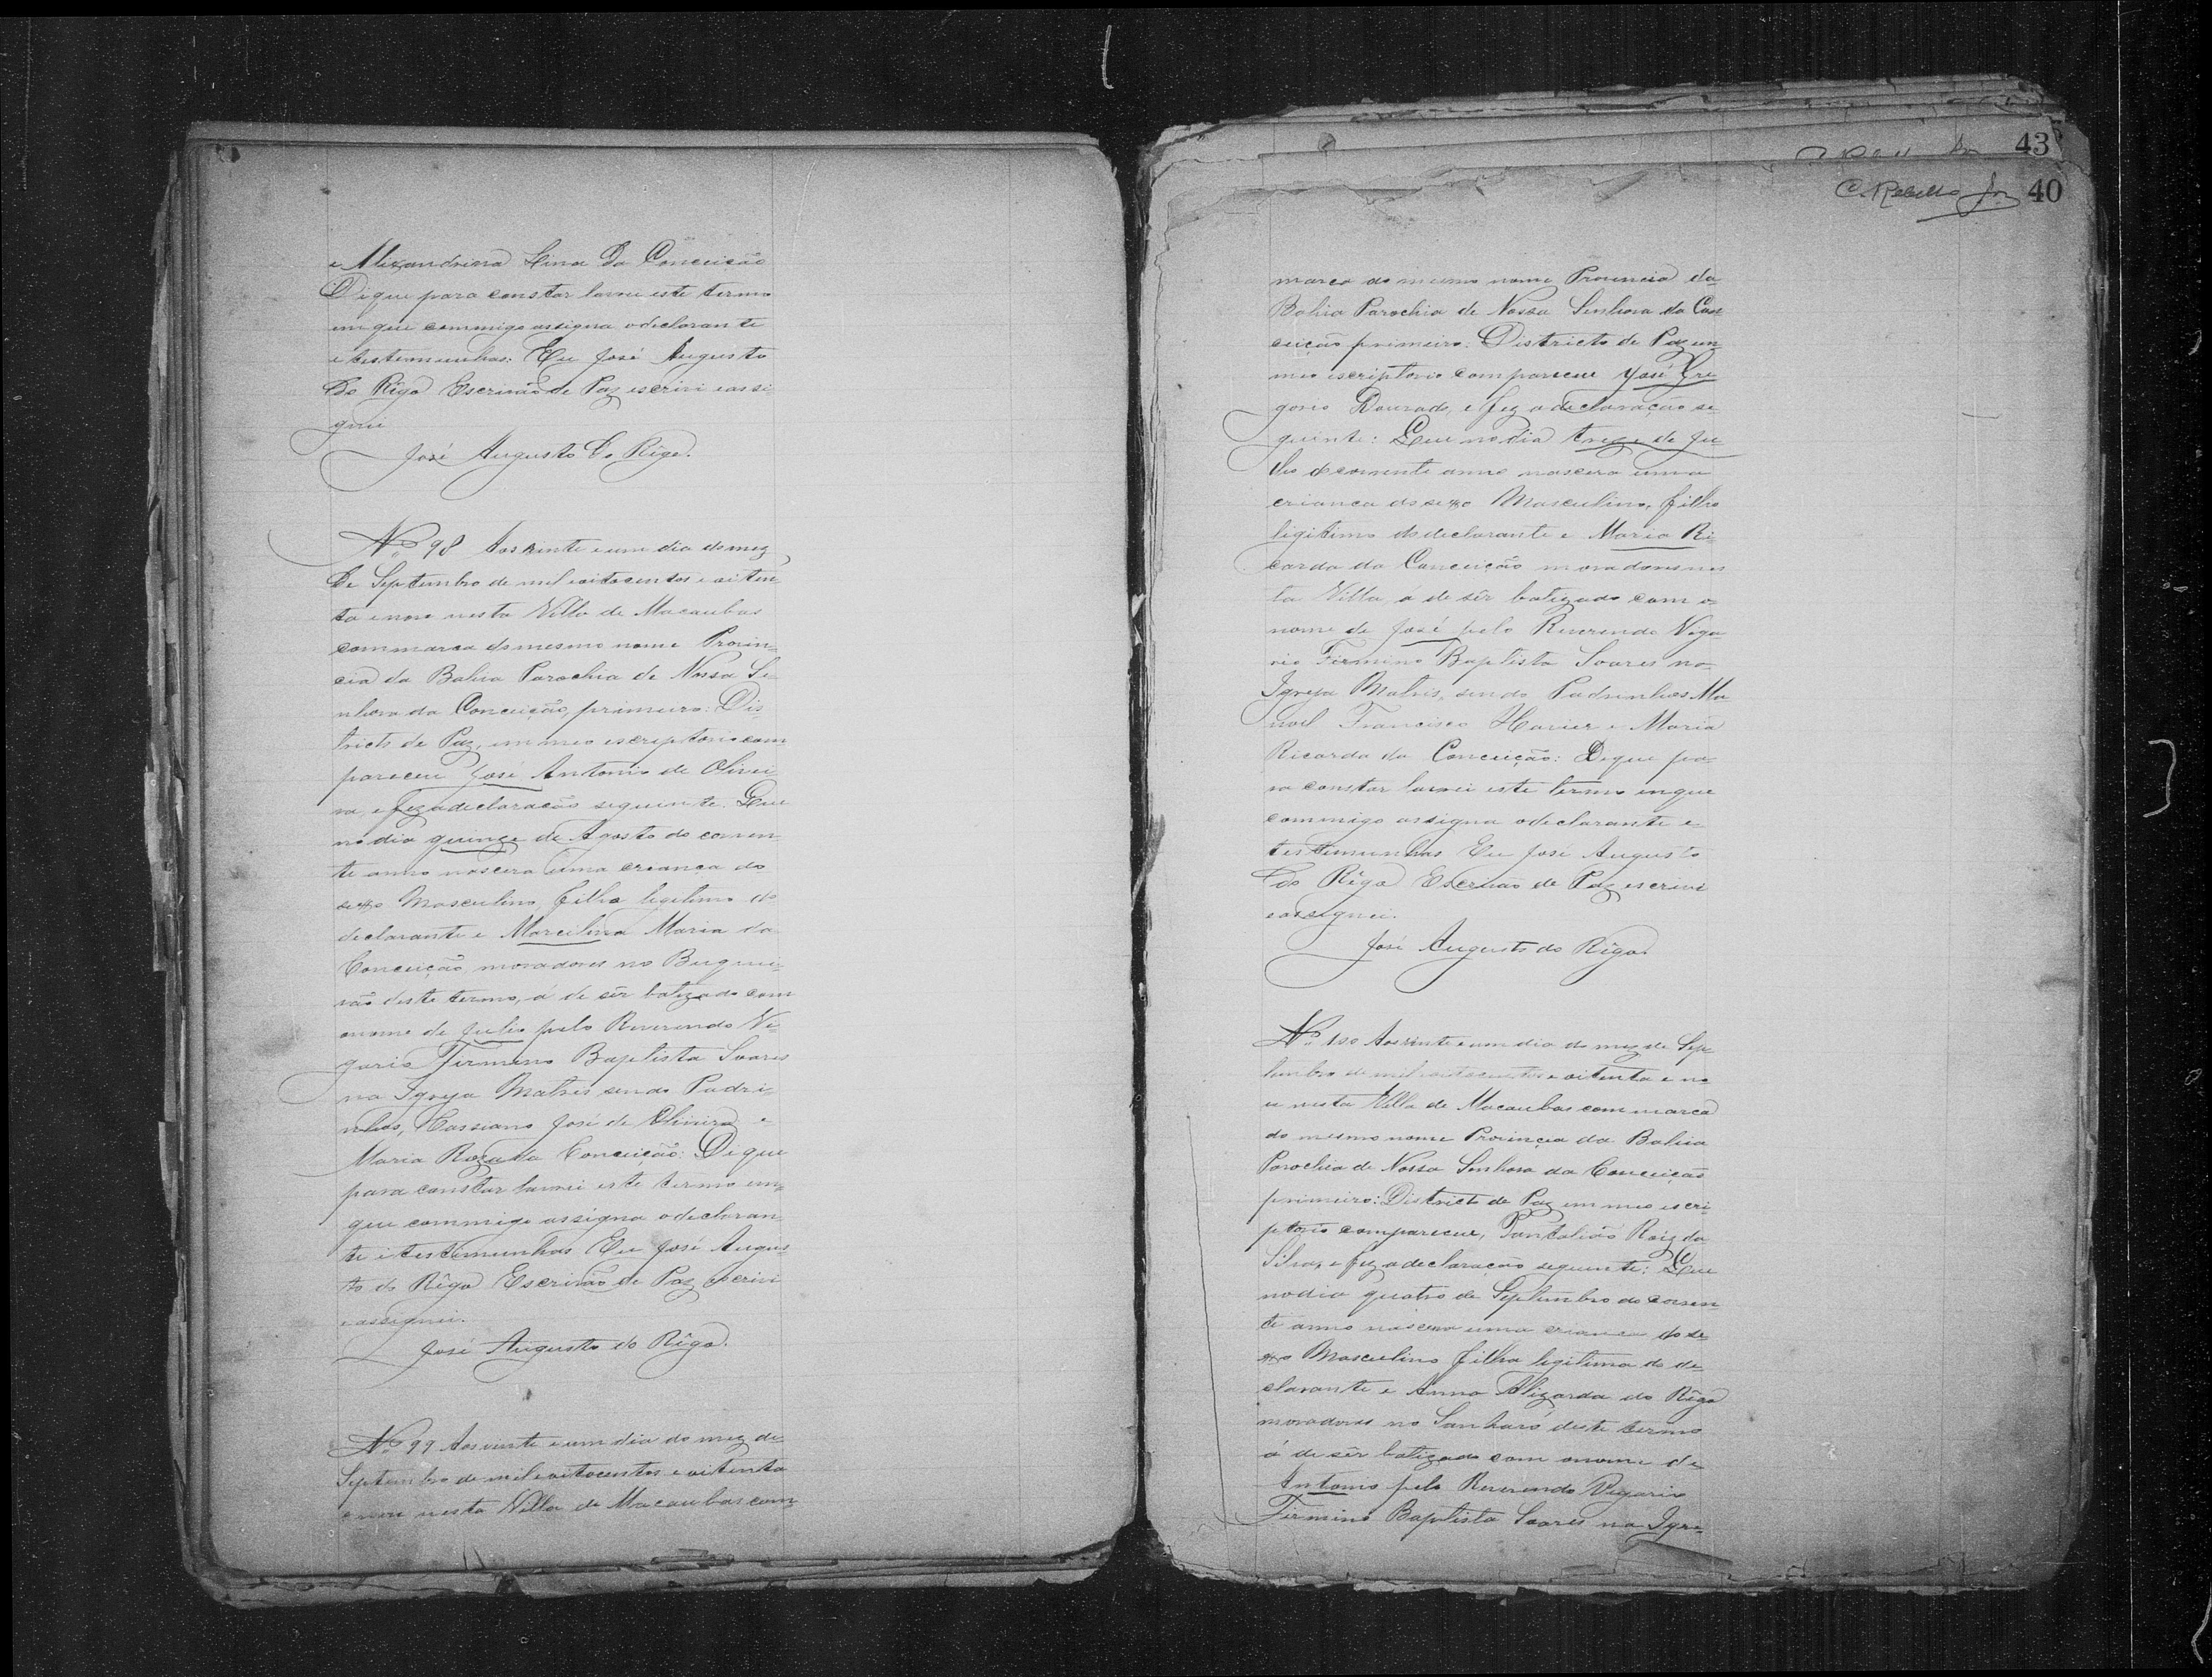 e Alixandrina Lina Da Conceicão
De que para constar lavrei este termo
em que commigo assigna o declarante
e testemunhas: Eu José Augusto
Do Rêgo Escrivão de Paz escrivi e assi-
gnei
José Augusto Do Rêgo.
Nº 98 Aos vinte e um dia do mez
De Septembro de mil e oitocentos e oiten
ta e nove nesta Villa de Macaubas
commarca do mesmo nome Provin-
cia da Bahia Parochia de Nossa Se-
nhora da Conceição, primeiro: Dis-
tricto de Paz, em meo escriptorio com
pareceu José Antonio de Olivei
ra, e fez a declaracão seguinte. Que
no dia quinze de Agosto do corren-
te anno nascera uma criança do
sexo Masculino, filho legitimo do
declarante e Marcilina Maria da
Conceição, moradores no
deste termo, á de sêr batizado com
o nome de Julio pelo Reverendo Vi-
gario Firmino Baptista Soares
na Igreja Matris sendo Padri-
nhos, Cassiano José de Oliveira e
Maria Roza da Conceição: De que
para constar lavrei este termo em
que commigo assigna o declaran
te e testemunhas Eu José Augus
to do Rêgo Escrivão de Paz escrivi
e assignei.
José Augusto do Rêgo.
Nº 99 Aos vinte e um dia do mez de
Septembro de mil e oitocentos e oitenta
e nove nesta Villa de Macaubas com
43
C. Rebello Jor 40
marca do mesmo nome Provincia da
Bahia Parochia de Nossa Senhora da Con
ceição primeiro: Districto de Paz em
meo escriptorio compareceu José Gre
gorio Dourado, e fez a declaração se
guinte: Que no dia treze de Ju
lho do corrente anno nascera uma
crianca do sexo Masculino, filho
ligitimo do declarante e Maria Ri-
carda da Conceição moradores nes
ta Villa a de sêr batizado com o
nome de José pelo Reverendo Viga
rio Firmino Baptista Soares na
Igreja Matris, sendo Padrinhos Ma
noel Francisco Xavier e Maria
Ricarda da Conceição: De que pa-
ra constar lavrei este termo em que
commigo assigna o declarante e
testemunhas Eu José Augusto
do Rêgo Escrivão de Paz escrivi
e assignei.
José Augusto do Rêgo.
Nº 100 Aos vinte e um dia do mez de Sep-
tembro de mil oitocentos e oitenta e no
ve nesta Villa de Macaubas commarca
do mesmo nome Provinçia da Bahia
Parochia de Nossa Senhora da Conceição
primeiro: Districto de Paz em meo escri
ptorio compareceu, Pantalião Roiz da
Silva, e fez a declaração seguinte: Que
no dia quatro de Septembro do corren
te anno nascera uma crianca do se-
xo Masculino filho legitimo do de
clarante e Anna Alizarda do Rêgo
moradores no Sanharó deste termo
á de sêr batizado com o nome de
Antonio pelo Reverendo Vigario
Firmino Baptista Soares na Igre-